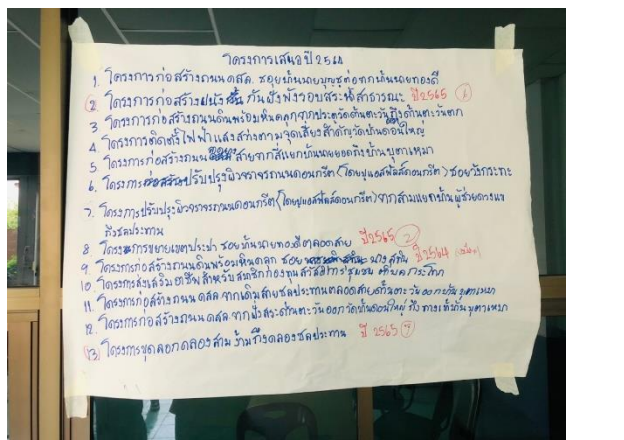 โครงการเสนอปี 2564
1. โครงการก่อสร้างถนนคสล. ซอยบ้านนายบุญชูต่อจากบ้านนายทองดี
2. โครงการก่อสร้างผนังกั้นดินพังรอบสระน้ำสาธารณะ ปี 2565 1
3. โครงการก่อสร้างถนนดินพร้อมหินคลุกจากประตูวัดด้านตะวันออกถึงด้านตะวันตก
4. โครงการติดตั้งไฟฟ้าแสงสว่างตามจุดเสี่ยงสำคัญวัดบ้านดอนใหญ่
5. โครงการก่อสร้างถนน สายจากสี่แยกบ้านนายยอดถึงบ้านบุตาเหมา
6. โครงการปรับปรุงผิวจราจรถนนคอนกรีต (โดยปูแอสฟัลส์คอนกรีต) ซอยวังกระทะ
7. โครงการปรับปรุงผิวจราจรถนนคอนกรีต (โดยปูแอสฟัลส์คอนกรีต) จากสามแยกบ้านผู้ช่วยดวงแข
ถึงชลประทาน
8. โครงการขยายเขตประปา ซอยบ้านนายทองดีตลอดสาย ปี 2565 2
9. โครงการก่อสร้างถนนดินพร้อมหินคลุก ซอย ปี 2564
10. โครงการส่งเสริมอาชีพสำหรับสมาชิกกองทุนสวัสดิการชุมชน ตำบล
11. โครงการก่อสร้างถนน คสล. จากเดิมสายชลประทานตลอดสายด้านตะวันออกบ้านบุตาเหมา
12. โครงการก่อสร้างถนน คสล. จากฝั่งสระด้านตะวันออกวัดบ้านดอนใหญ่ ถึงทางเข้าบ้านบุตาเหมา
13. โครงการขุดลอกคลองสามง่ามถึงคลองชลประทาน ปี 2565